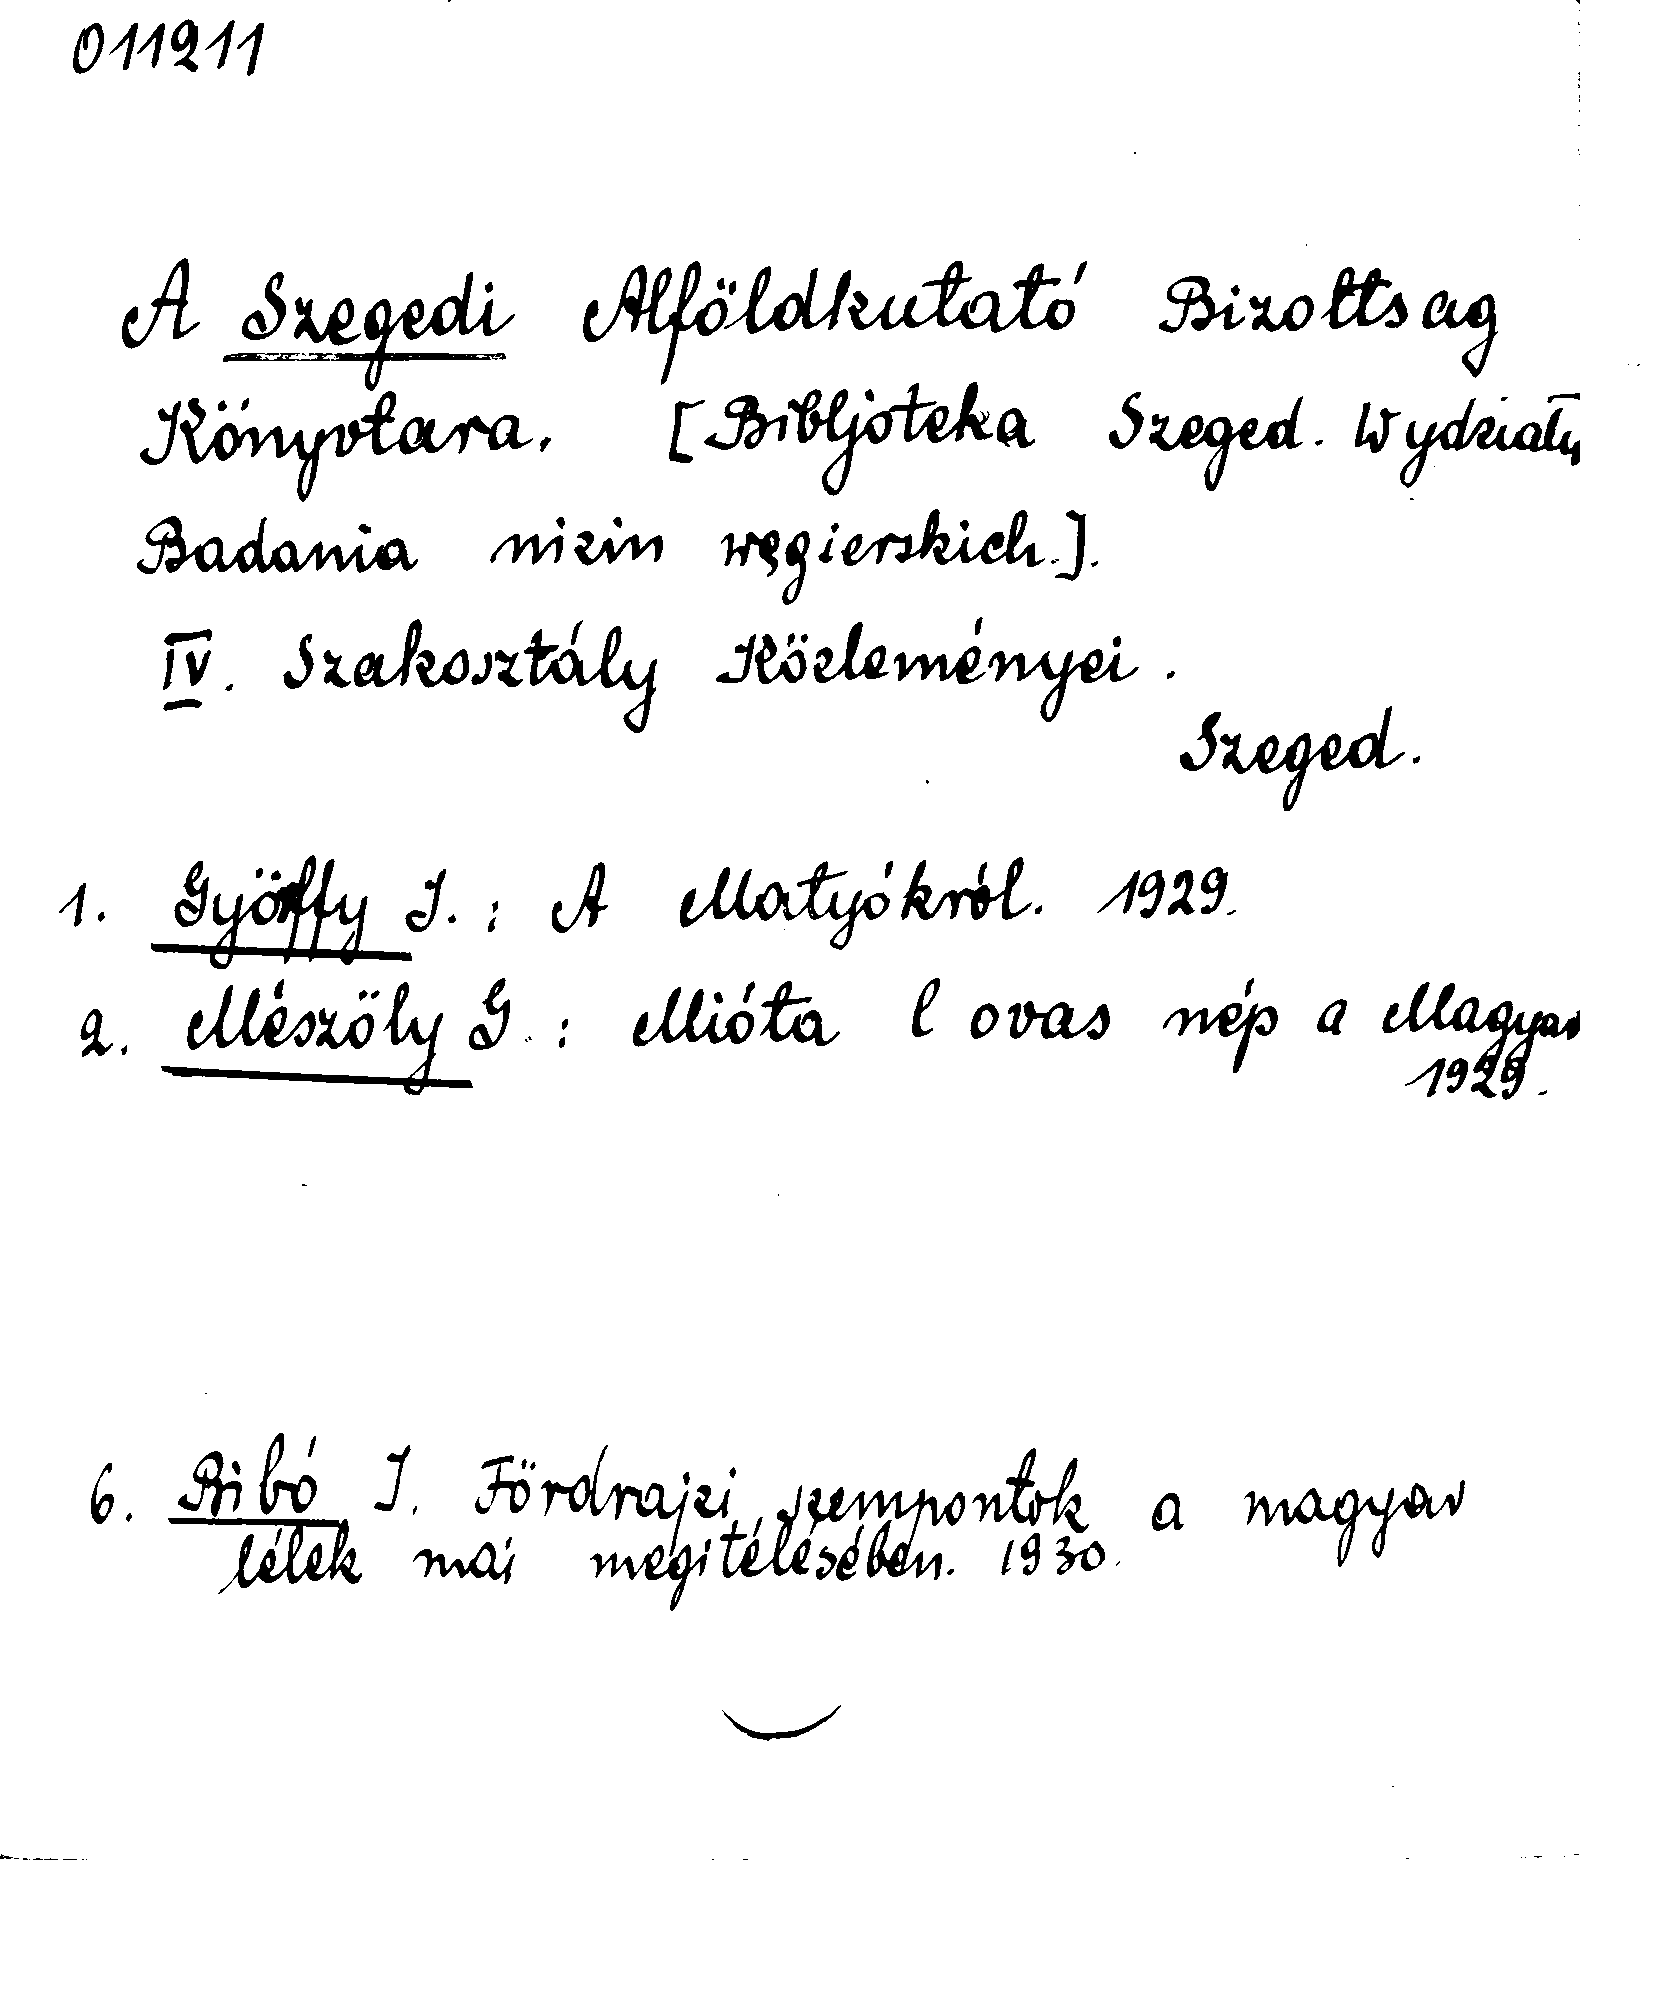 011211
A Szegedi Alföldkutató Bizottsag
Könyvtara. [Bibljoteka Szeged. Wydziału
Badania nizin węgierskich.].
IV. Szakosztály Közleményei.
Szeged.
1. Györffy I. : A Matyókról. 1929.
2. Mészöly G. : Mióta lovas nép a Magyar
1929.
6. Bibó I. Fördrajzi szempontok a magyar
lélek mai megitélésében. 1930.